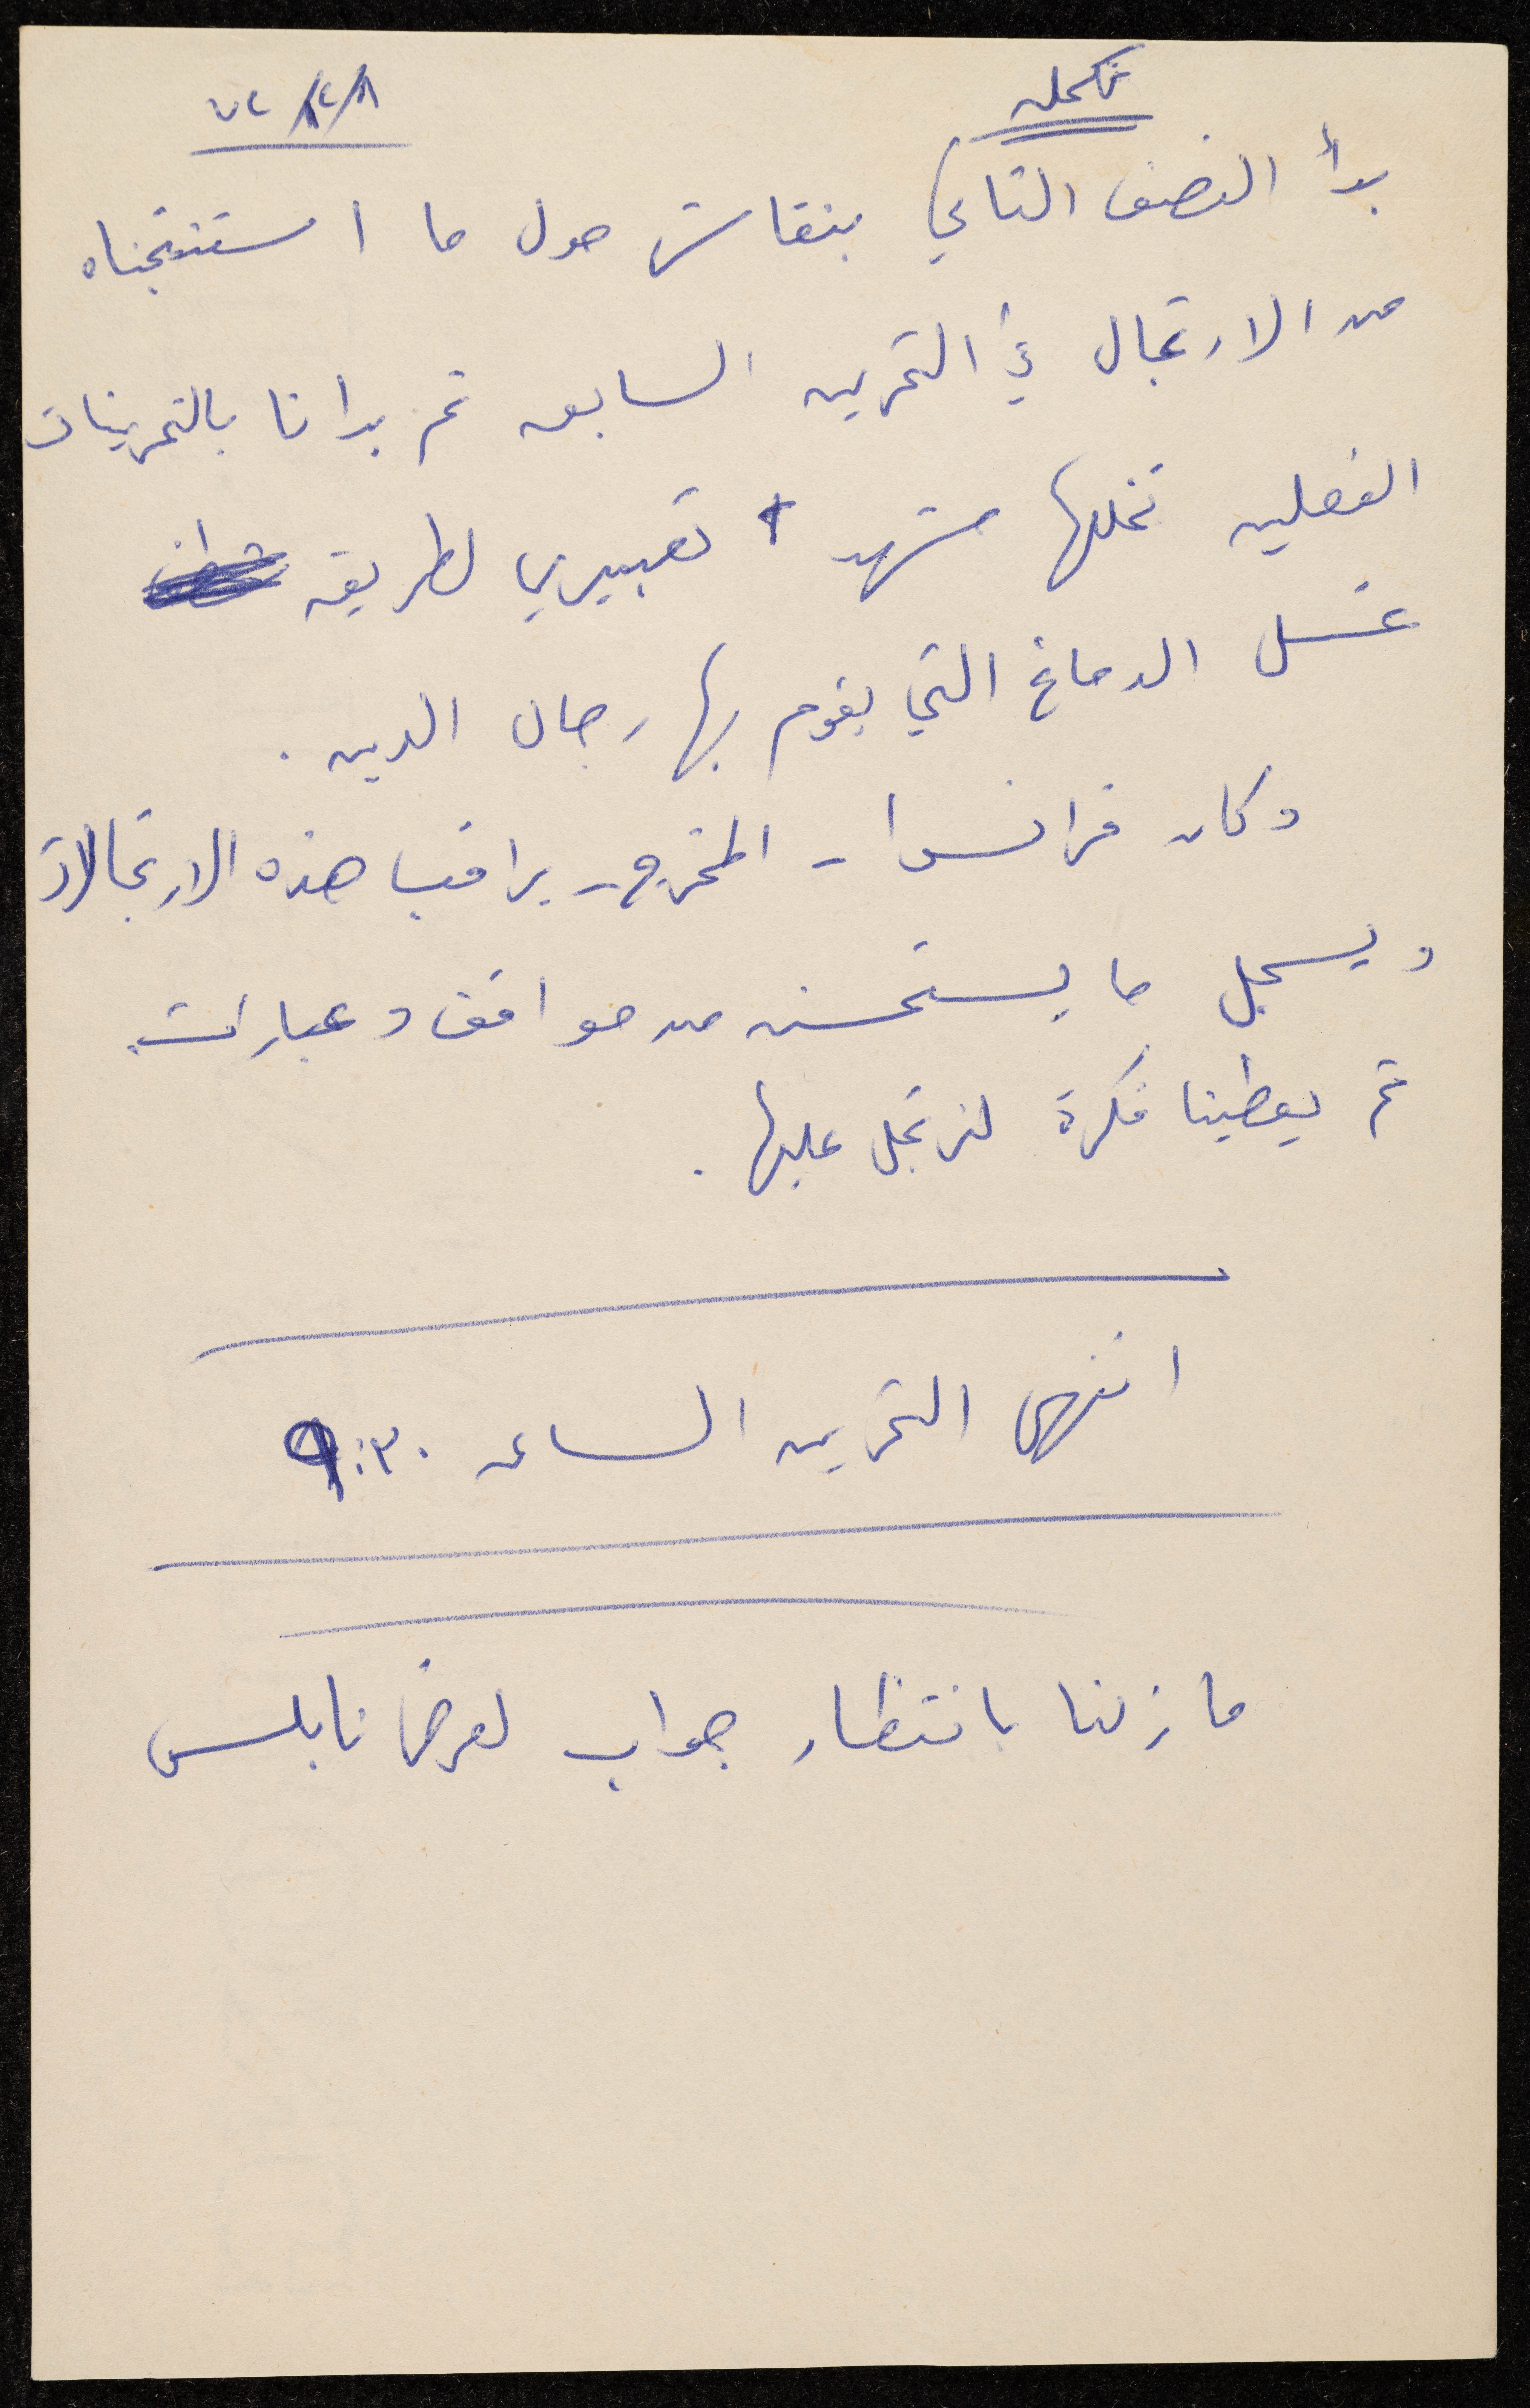 تكمله
٨/٢/٧٢
بدأ النصف الثاني بنقاش حول ما استنتجناه
من الارتجال في التمرين السابق ثم بدأنا بالتمرينات
الفعليه تخللها مشهد تعبيري لطريقه
غسل الدماغ التي يقوم بها رجال الدين .
وكان فرانسوا - المخرج - يراقب هذه الارتجالات
ويسجل ما يستحسنه من مواقف وعبارات
ثم يعطينا فكرة لنرتجل عليها .
انتهى التمرين الساعه ٩:٣٠
ما زلنا بانتظار جواب لعرض نابلس